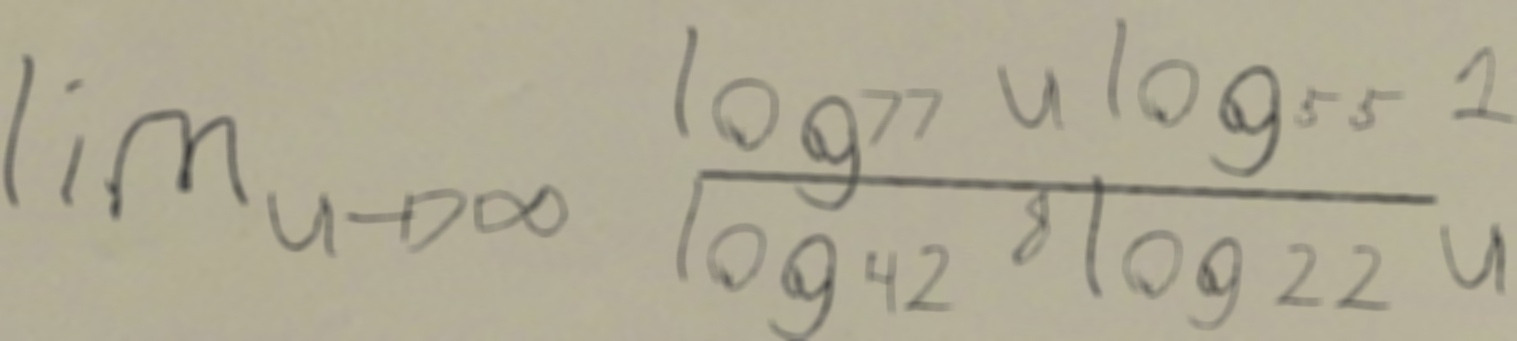 \lim_{u \to \infty} \frac{\log_{77} u \log_{55} 1}{\log_{42} 8 \log_{22} u}